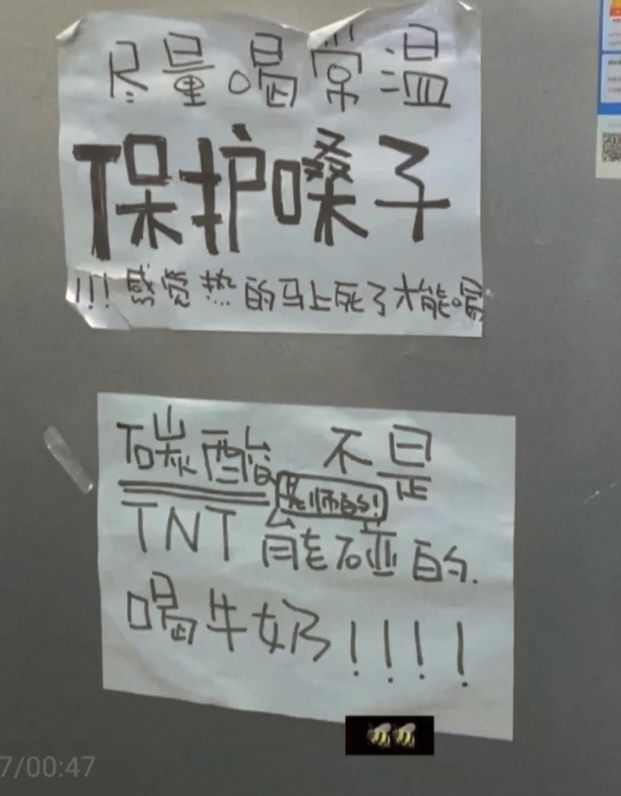 尽量喝常温
保护嗓子
!!! 感觉热的马上死了才能喝
碳酸 不是
老师的!
TNT 能碰的.
喝牛奶!!!!
7/00:47